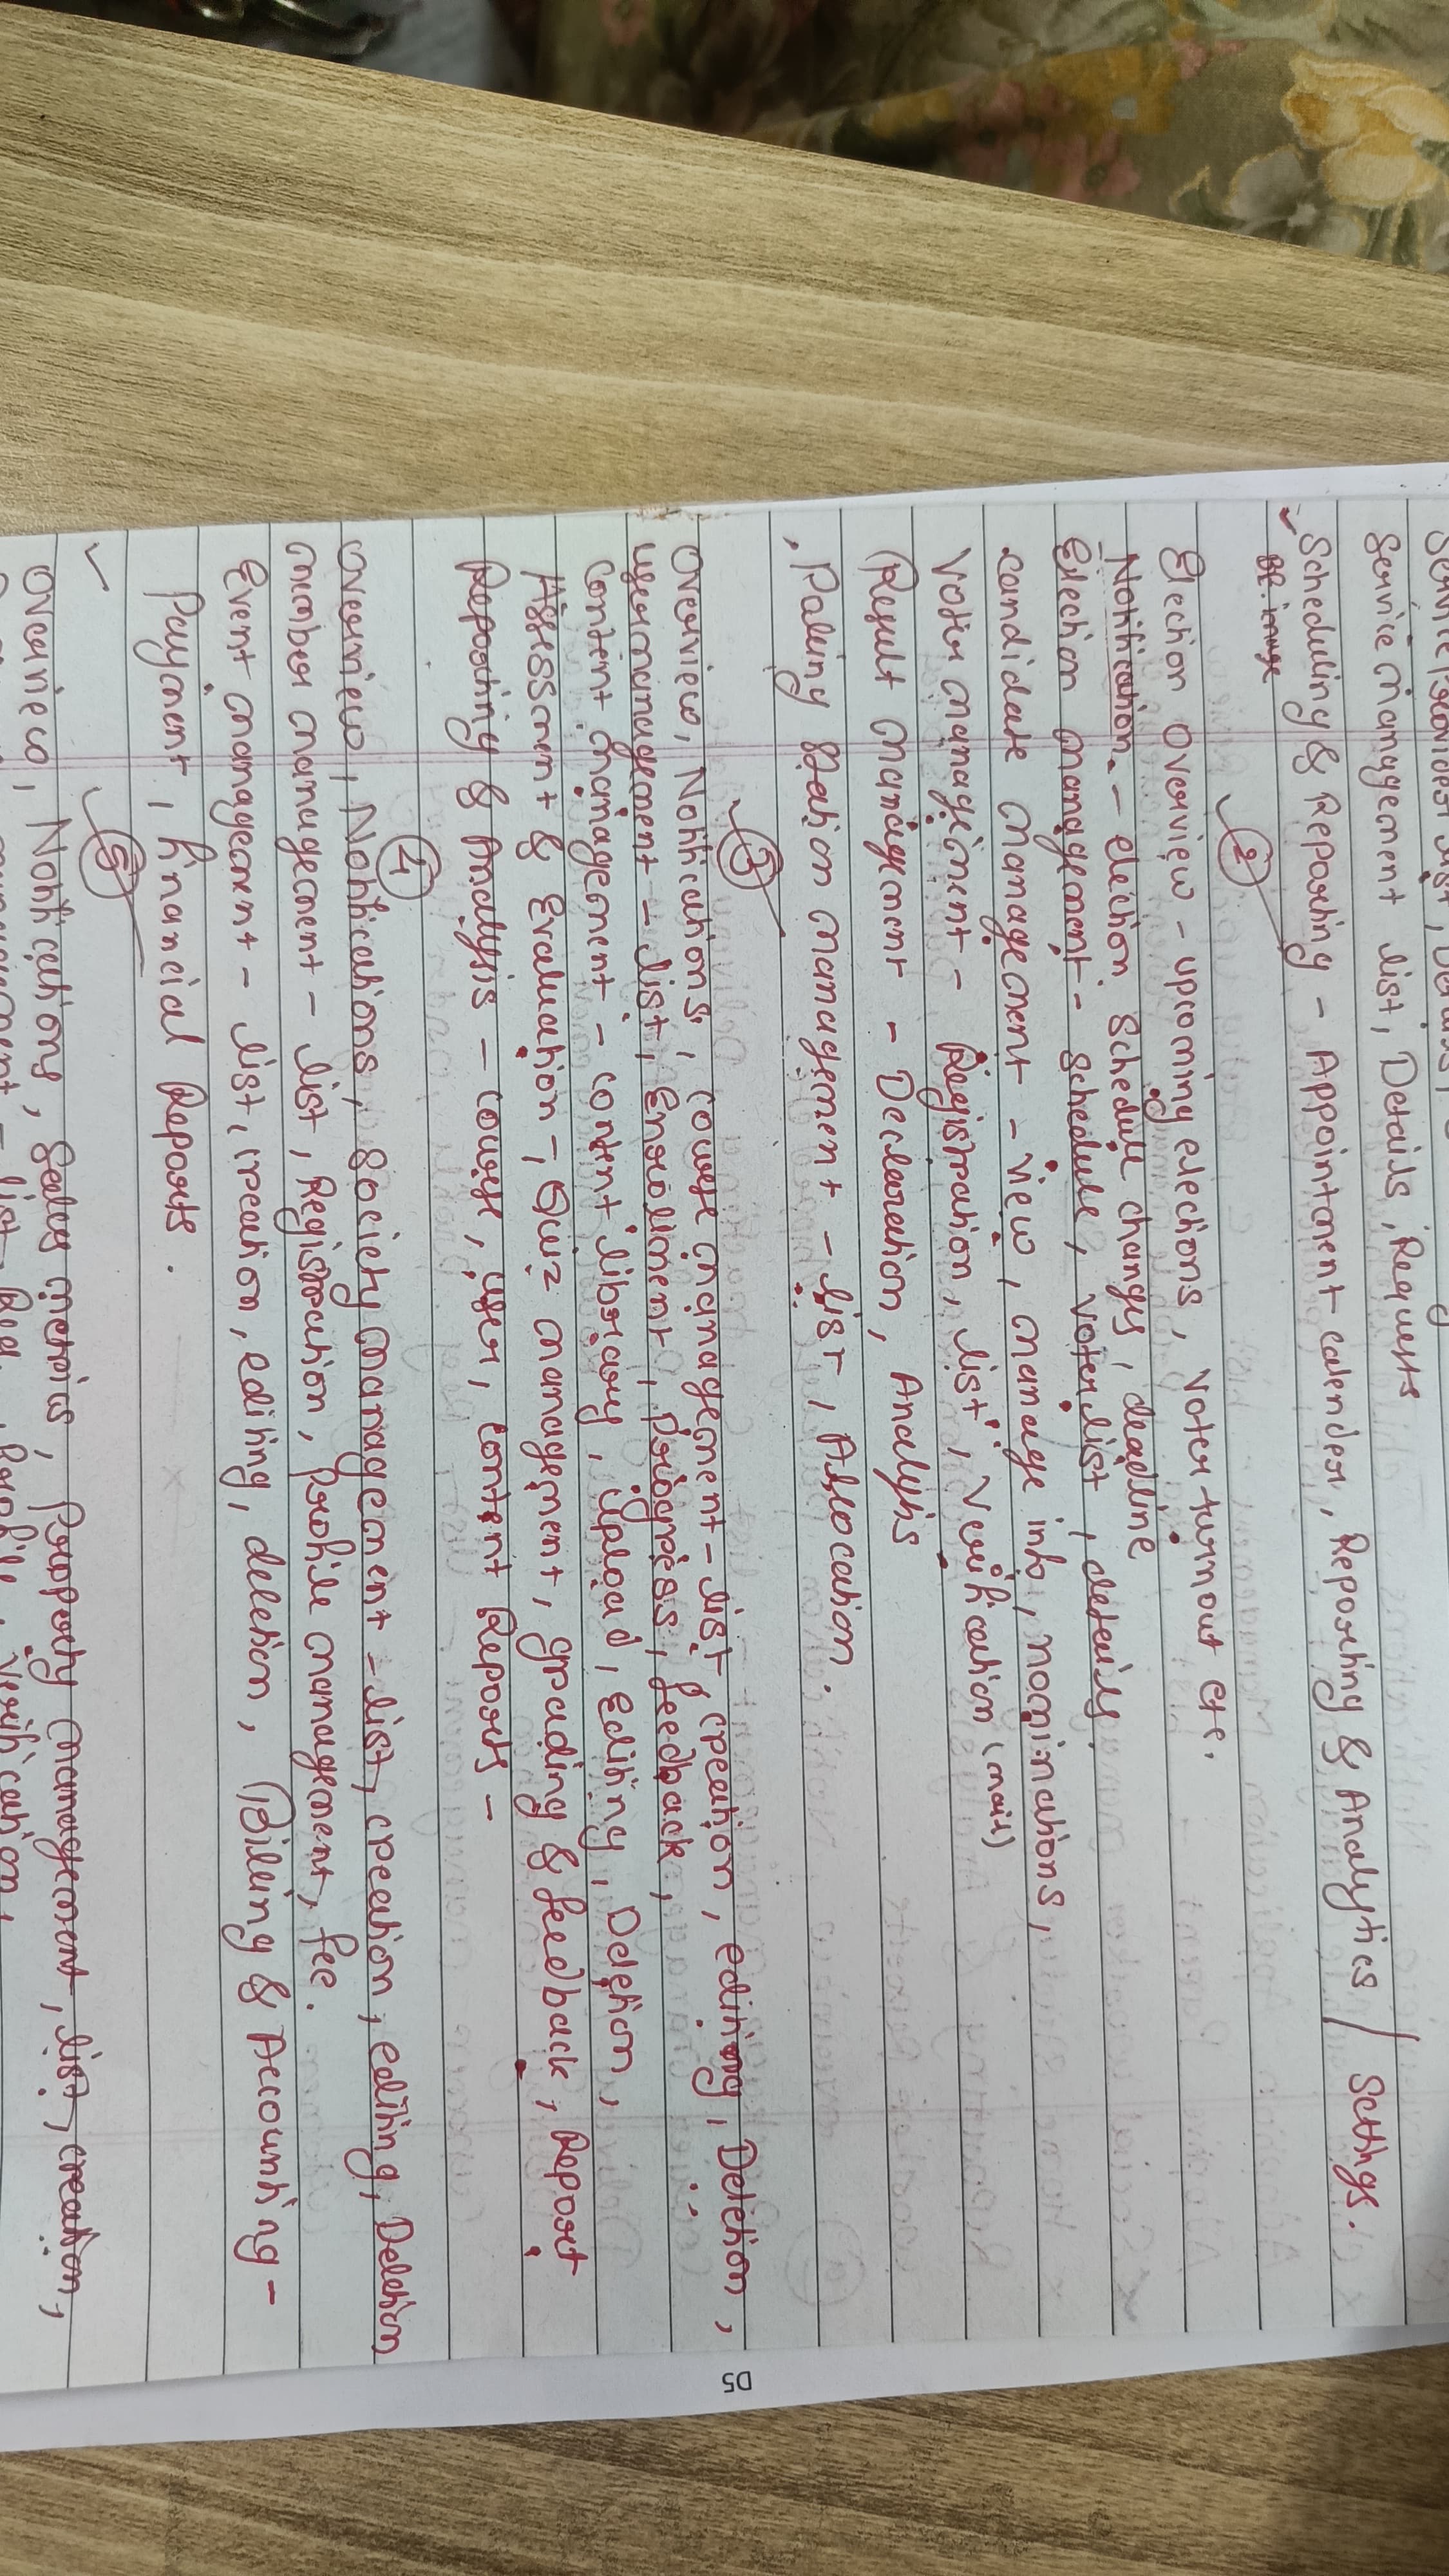 Service management list, Details, Requests
Scheduling & Reporting - Appointment calender, Reporting & Analytics / Settings.
②
Election Overview - upcoming elections, Voter turnout etc.
Notification - election schedule changes, deadline
Election management - schedule, voter list, details
candidate management - view, manage info, nominations,
Voter management - Registration, list, Verification (mail)
Result management - Declaration, Analysis
Polling station management - list, Allocation.
③
Overview, Notifications, course management - list, creation, editing, Deletion,
user management - list, Enrollment, progress, feedback,
content management - content library, upload, editing, Deletion,
Assessment & Evaluation -, Quiz management, grading & feedback, Report
Reporting & Analysis - course, user, content Reports -
④
Overview, Notifications, Society management - list, creation, editing, Deletion
member management - list, Registration, profile management, fee.
Event management - list, creation, editing, deletion, (Billing & Accounting -
Payment, financial Reports.
⑤
Overview, Notifications, Sales metrics, property management, list, creation,
D5